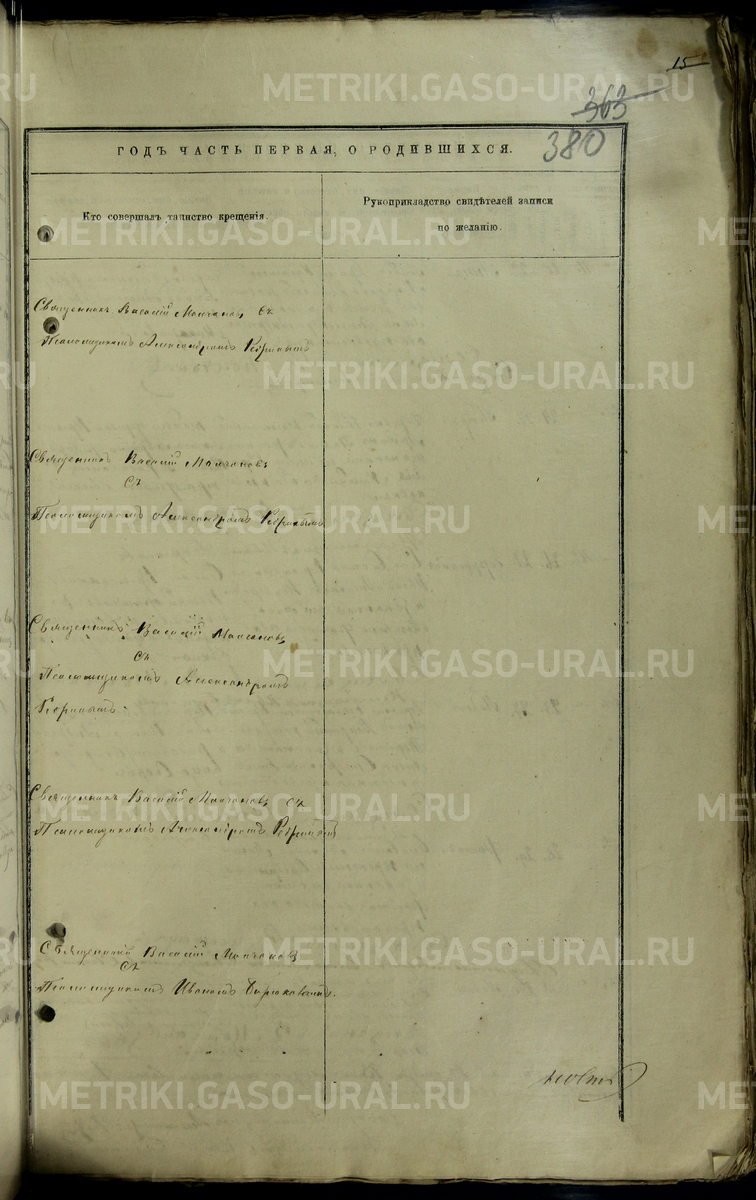 15
363
380
ГОДЪ ЧАСТЬ ПЕРВАЯ, О РОДИВШИХСЯ.
Кто совершалъ таинство крещенія.
Рукоприкладство свидѣтелей записи
по желанію.
Священникъ Василій Молчановъ съ
Псаломщикомъ Александромъ
Священникъ Василій Молчановъ
съ
Псаломщикомъ Александромъ
Священникъ Василій Молчановъ
съ
Псаломщикомъ Александромъ
Священникъ Василій Молчановъ съ
Псаломщикомъ Александромъ
Священникъ Василій Молчановъ
съ
Псаломщикомъ Иваномъ
METRIKI.GASO-URAL.RU